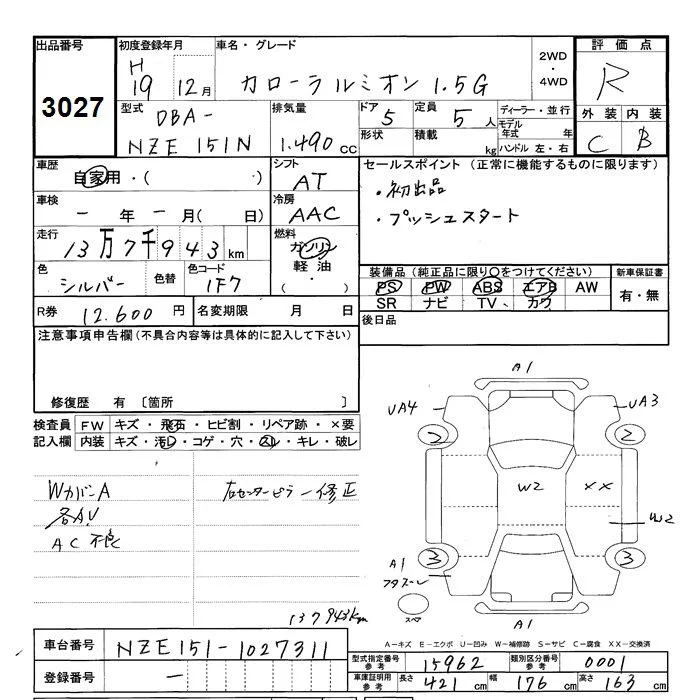 出品番号 初度登録年月 車名・グレード 2WD・4WD 評価点
3027 H 19 12月 カローラルミオン 1.5G R
型式 DBA- NZE 151N 排気量 1.490 CC ドア 5 定員 5 人 ディーラー・並行
形状 積載 kg モデル年式 年 ハンドル 左・右
外装 内装
C B
車歴 自家用・( ・) シフト AT
セールスポイント (正常に機能するものに限ります)
・初出品
・プッシュスタート
車検 - 年 - 月( 日) 冷房 AAC
走行 13万7千943 km 燃料 ガソリン・軽油・( )
色 シルバー 色替 色コード 1F7
装備品(純正品に限り○をつけてください) 新車保証書
PS PW ABS エアB AW 有・無
SR ナビ TV カワ
R券 12.600 円 名変期限 月 日 後日品
注意事項申告欄(不具合内容等は具体的に記入して下さい)
修復歴 有 〔箇所 〕
検査員記入欄 FW キズ・飛石・ヒビ割・リペア跡・×要
内装 キズ・汚レ・コゲ・穴・スレ・キレ・破レ
WカバーA 右センターピラー修正
各AU
AC不良
137943km
A1
UA4 UA3
2 2
W2 XX
W2
3 3
A1
スペア
A1
A-キズ E-エクボ U-凹み W-補修跡 S-サビ C-腐食 XX-交換済
車台番号 NZE151-1027311
登録番号 -
型式指定番号 参考 15962 類別区分番号 参考 0001
車庫証明用 参考 長さ 421 cm 幅 176 cm 高さ 163 cm